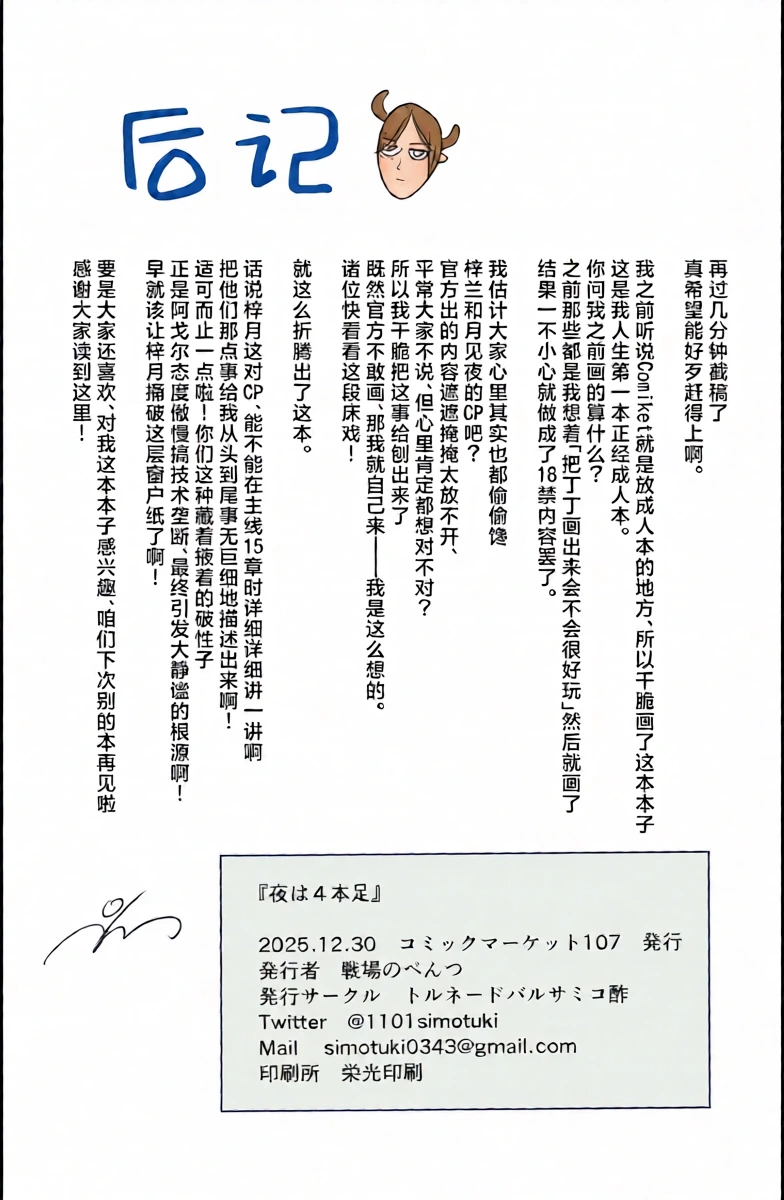 后记
再过几分钟截稿了
真希望能好歹赶得上啊。
我之前听说Comiket就是放成人本的地方、所以干脆画了这本本子
这是我人生第一本正经成人本。
你问我之前画的算什么？
之前那些都是我想着「把丁丁画出来会不会很好玩」然后就画了
结果一不小心就做成了18禁内容罢了。
我估计大家心里其实也都偷偷馋
梓兰和月见夜的CP吧？
官方出的内容遮遮掩掩太放不开、
平常大家不说、但心里肯定都想对不对？
所以我干脆把这事给刨出来了
既然官方不敢画、那我就自己来——我是这么想的。
诸位快看看这段床戏！
就这么折腾出了这本。
话说梓月这对CP、能不能在主线15章时详细详细讲一讲啊
把他们那点事给我从头到尾事无巨细地描述出来啊！
适可而止一点啦！你们这种藏着掖着的破性子
正是阿戈尔态度傲慢搞技术垄断、最终引发大静谧的根源啊！
早就该让梓月捅破这层窗户纸了啊！
要是大家还喜欢、对我这本本子感兴趣、咱们下次别的本再见啦
感谢大家读到这里！
『夜は４本足』
2025.12.30　コミックマーケット107　発行
発行者　戦場のぺんつ
発行サークル　トルネードバルサミコ酢
Twitter　@1101simotuki
Mail　simotuki0343@gmail.com
印刷所　栄光印刷